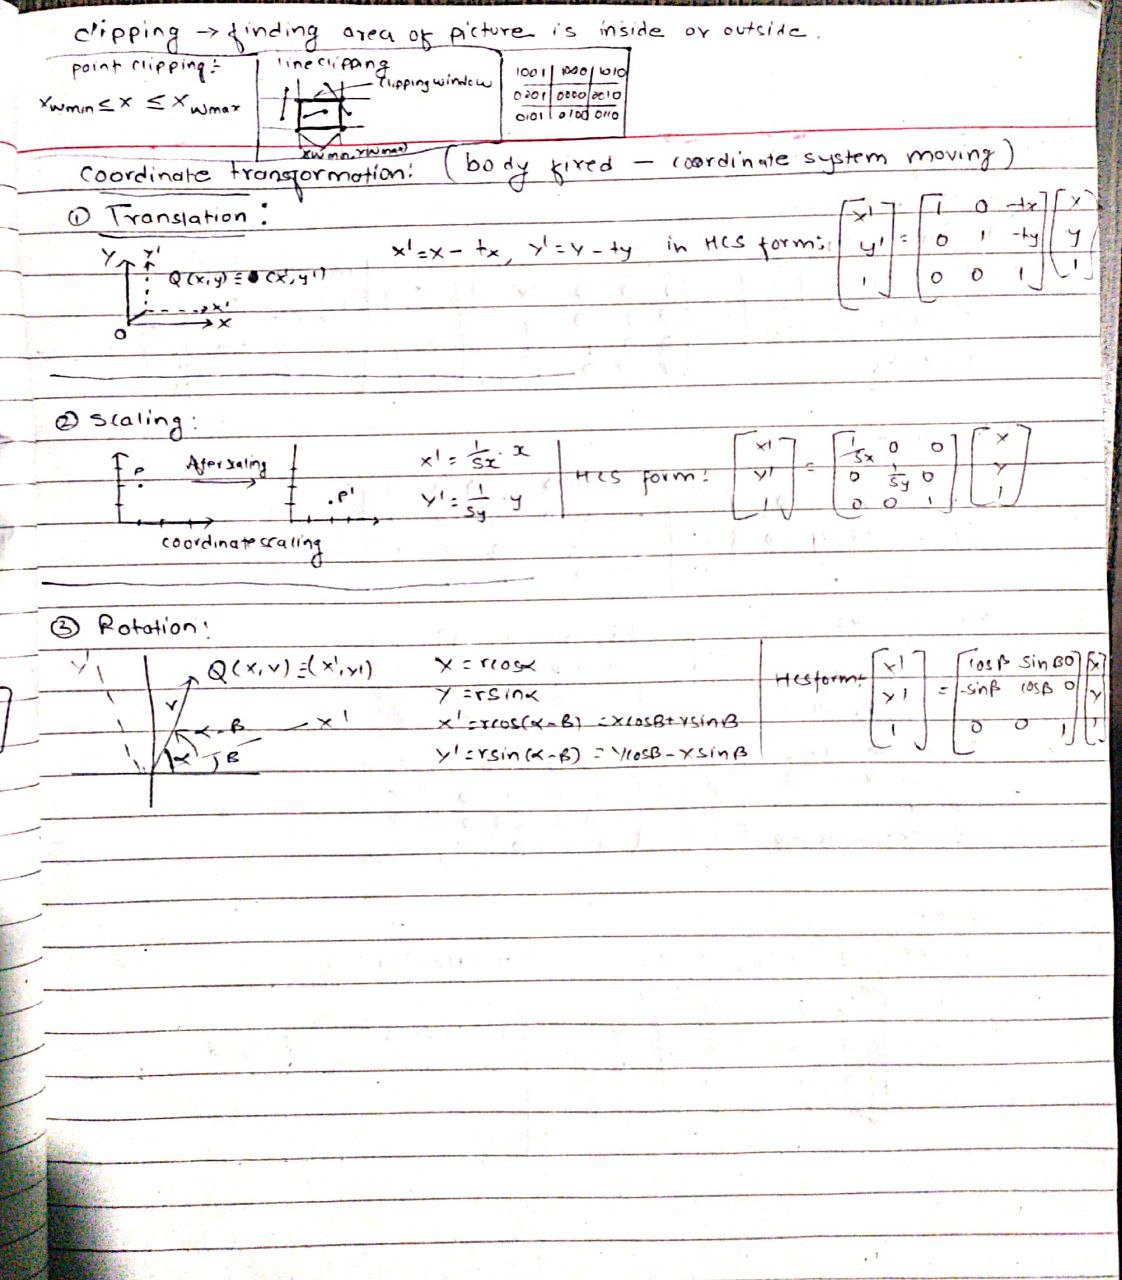 clipping → finding area of picture is inside or outside.
point clipping:
xwmin ≤ x ≤ xwmax
line clipping
clipping window
1001 | 1000 | 1010
0001 | 0000 | 0010
0101 | 0100 0110
Coordinate transformation: (body fixed — coordinate system moving)
① Translation:
x' = x - tx, y' = y - ty in HCS form:
[x' y' 1] = [1 0 -tx 0 1 -ty 0 0 1] [x y 1]
Y Y'
Q(x,y) ≡ (x',y')
x'
X
O
② Scaling:
P After scaling
.P'
coordinate scaling
x' = 1/Sx · x
y' = 1/Sy · y
HCS form: [x' y' 1] = [1/Sx 0 0 0 1/Sy 0 0 0 1] [x y 1]
③ Rotation:
Y'
Q(x,y) ≡ (x',y')
r
α-β x'
α β
x = rcosα
y = rsinα
x' = rcos(α-β) = xcosβ+ysinβ
y' = rsin(α-β) = ycosβ-xsinβ
HCS form: [x' y' 1] = [cosβ sinβ 0 -sinβ cosβ 0 0 0 1] [x y 1]